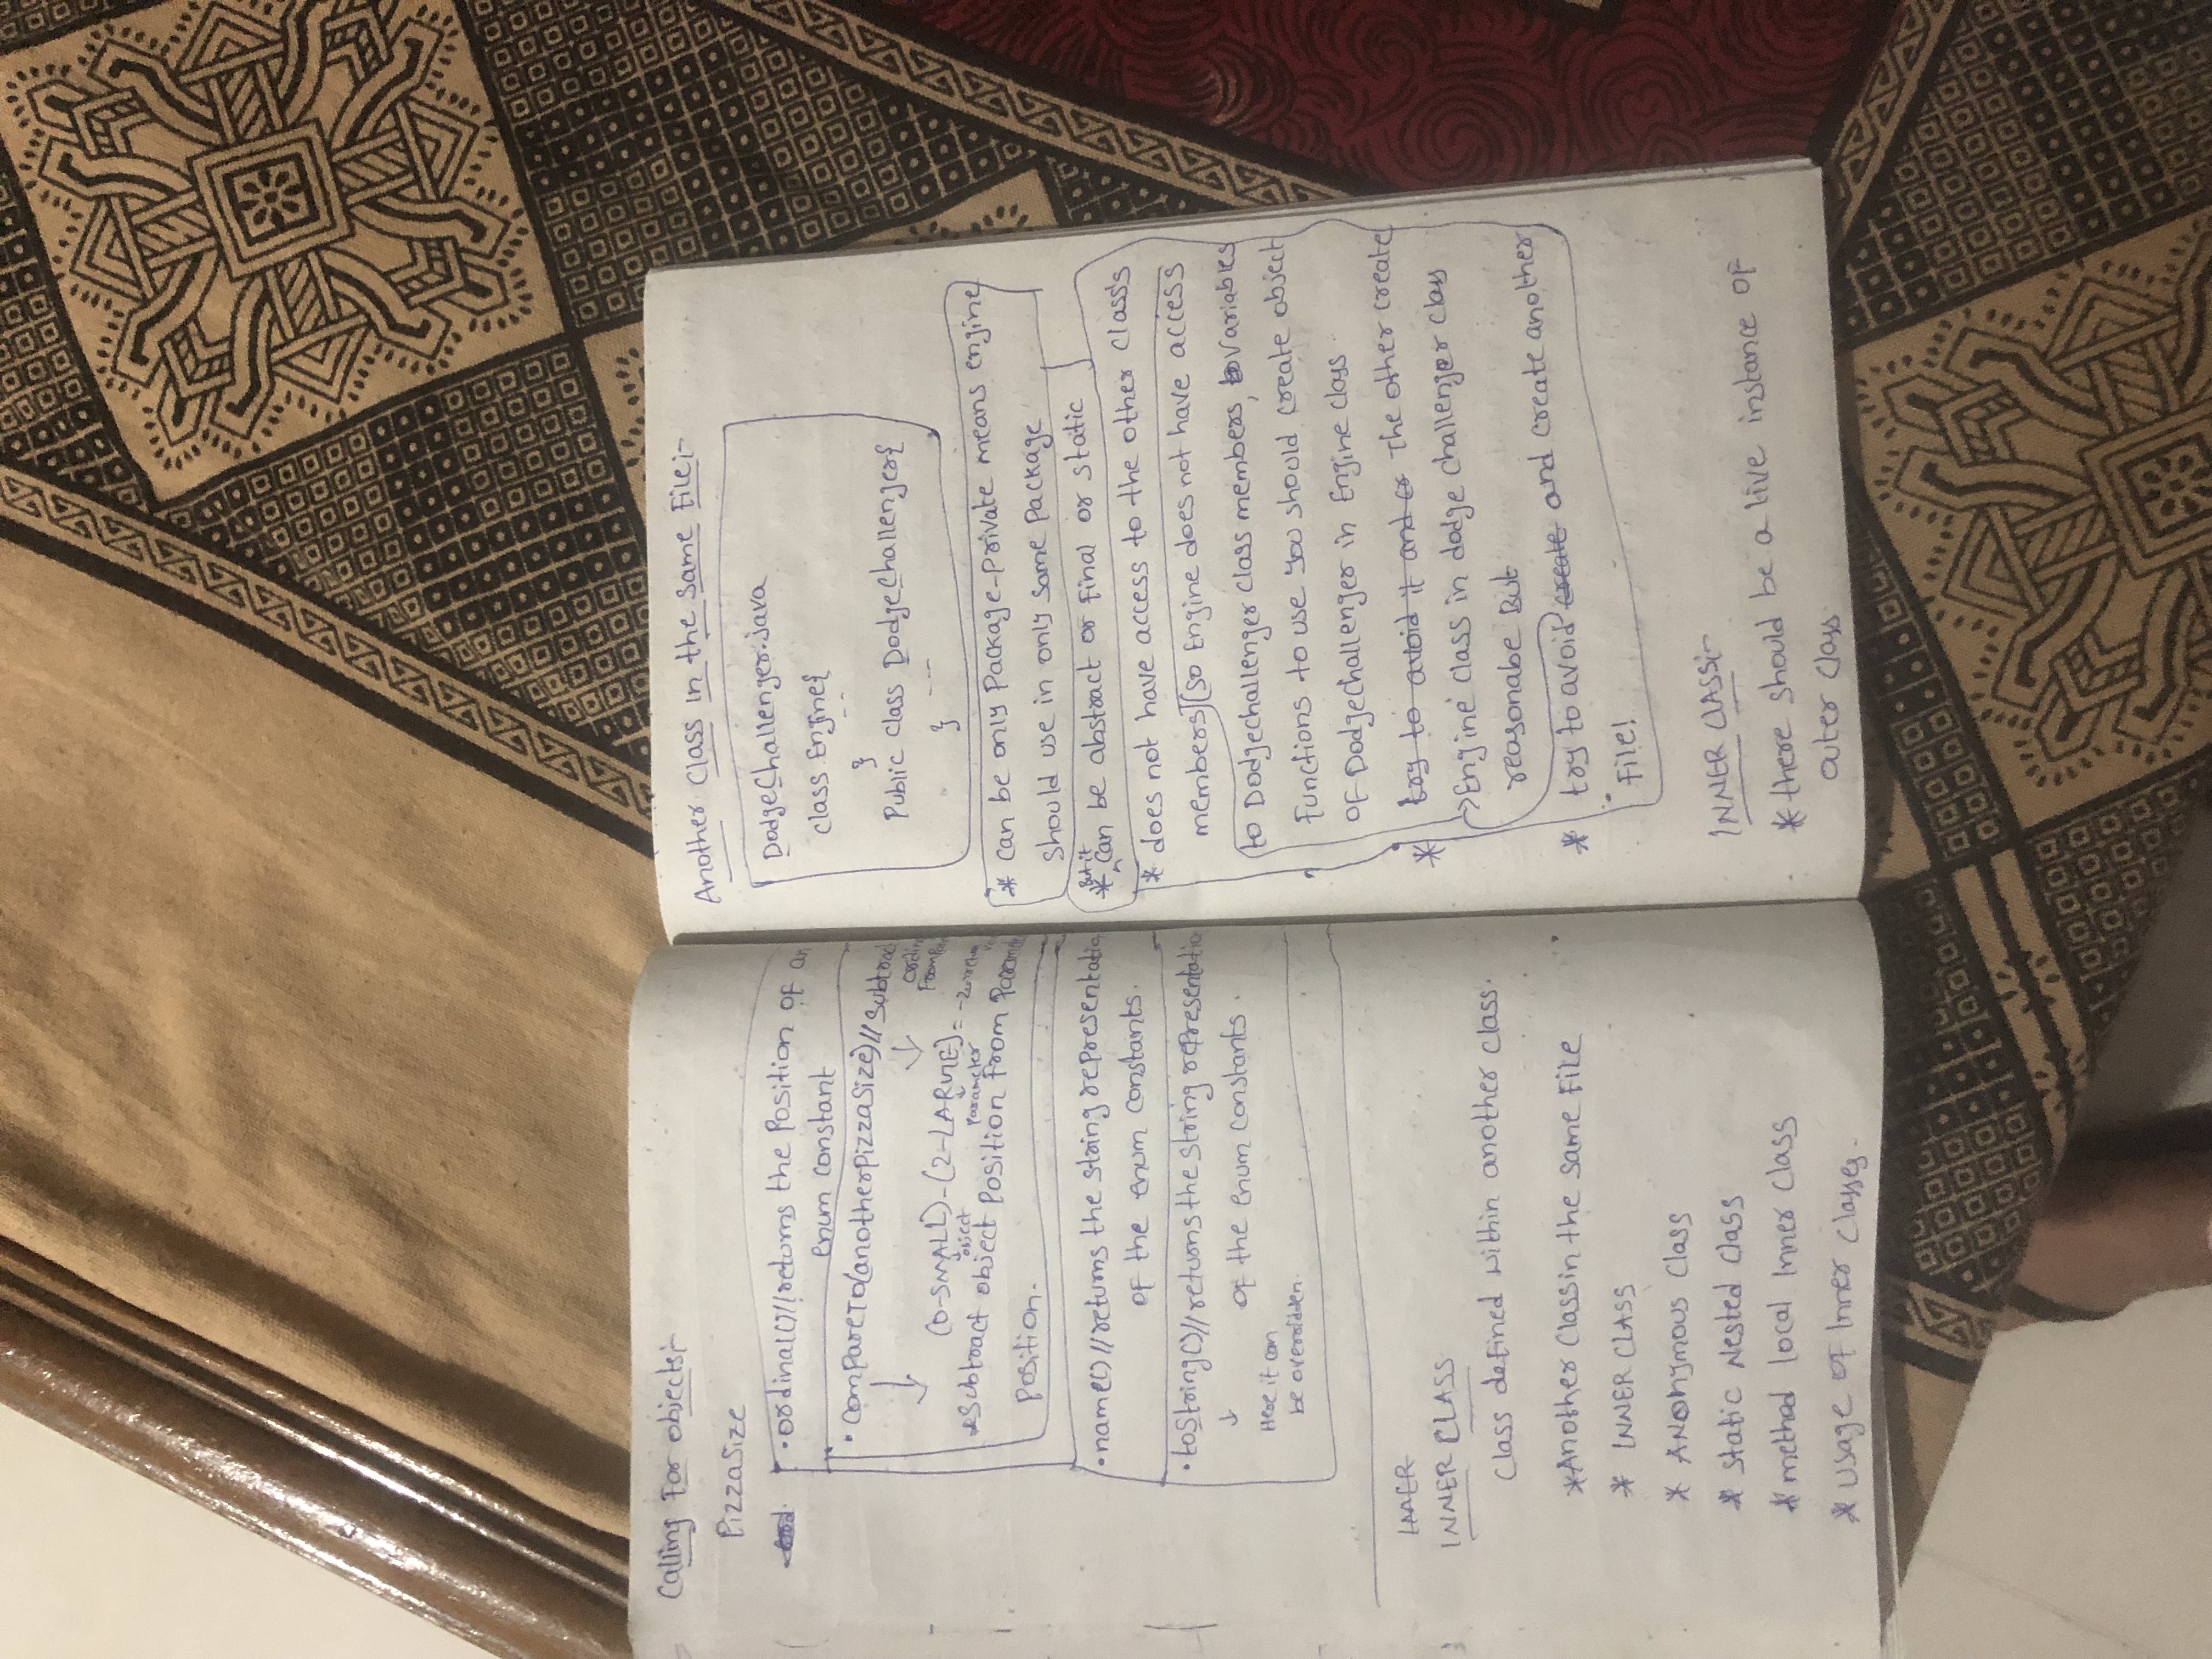 Calling For objects:-
PizzaSize
• ordinal() // returns the Position of an
enum constant
• compareTo(anotherPizzaSize) // Subtract
(0-SMALL) - (2-LARGE) = -2
object
parameter
* Subtract object Position From Parame
Position.
• name() // returns the string representatio
of the enum constants.
• toString() // returns the string representatio
of the enum constants.
Here it can
be overridden.
INNER
INNER CLASS
Class defined within another class.
* Another Class in the same File
* INNER CLASS
* Anonymous Class
* Static Nested Class
* method local Inner Class
* usage of Inner Classes.
Another Class in the same File:-
DodgeChallenger.java
class Engine{
--
}
Public class DodgeChallenger{
---
}
* can be only Package-private means engine
should use in only same package
But it
* can be abstract or final or static
* does not have access to the other class's
members (so Engine does not have access
to Dodgechallenger class members, Variables
functions to use you should create object
of DodgeChallenger in Engine class
* try to avoid it and cr The other create
Engine class in dodge challenger class
reasonabe But
* try to avoid create and create another
File!
INNER CLASS:-
* there should be a live instance of
outer class